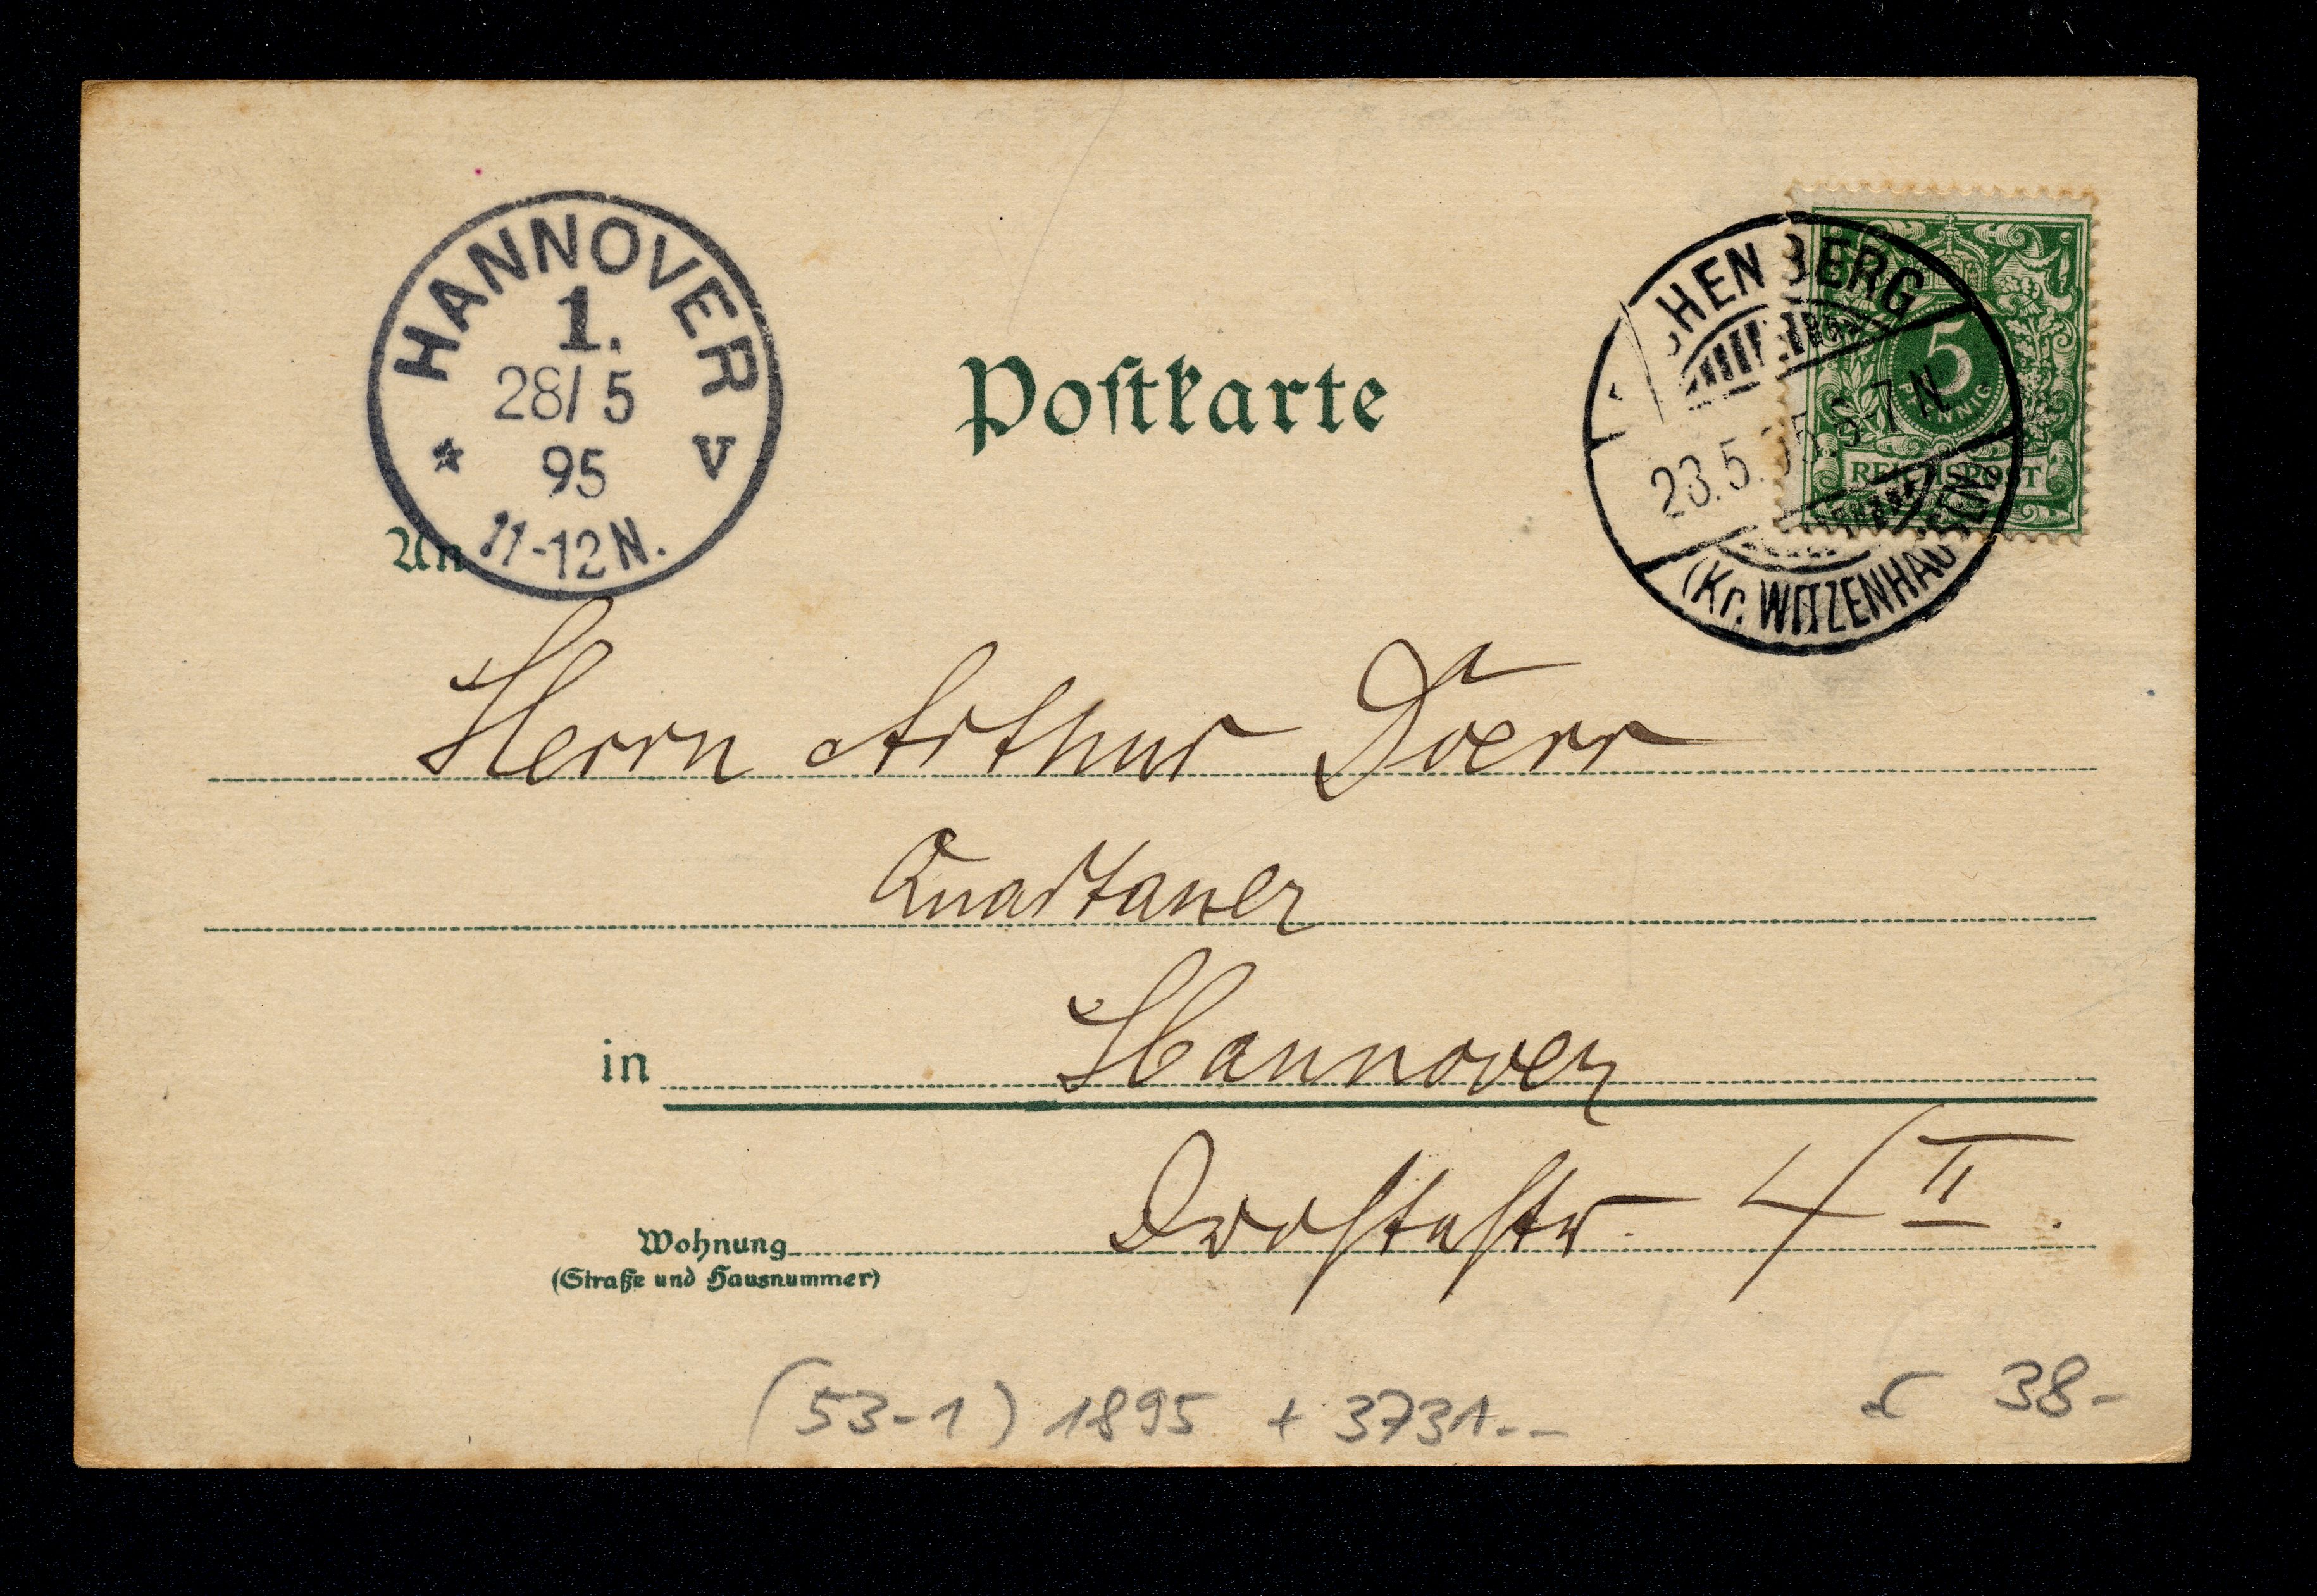 HANNOVER
1.
28/ 5
95
* V
11-12 N.
Postkarte
HENBERG
23.5.95. 6-7 N.
(Kr. WITZENHAUSEN)
5
PFENNIG
REICHSPOST
An
Herrn Arthur Döerr
Quartaner
in Hannover
Wohnung Drostestr. 4 II.
(Straße und Hausnummer)
(53-1) 1895 + 3731.--
38-